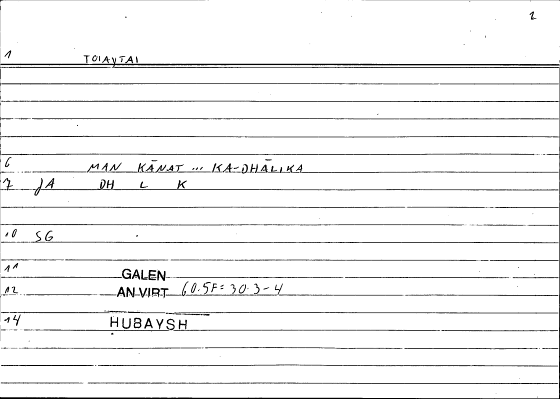 2
1 TOIAYTAI
6 MAN KĀNAT ... KA-DHĀLIKA
7 JA DH L K
10 SG
11 GALEN
12 AN VIRT 60.5F = 30.3-4
14 HUBAYSH